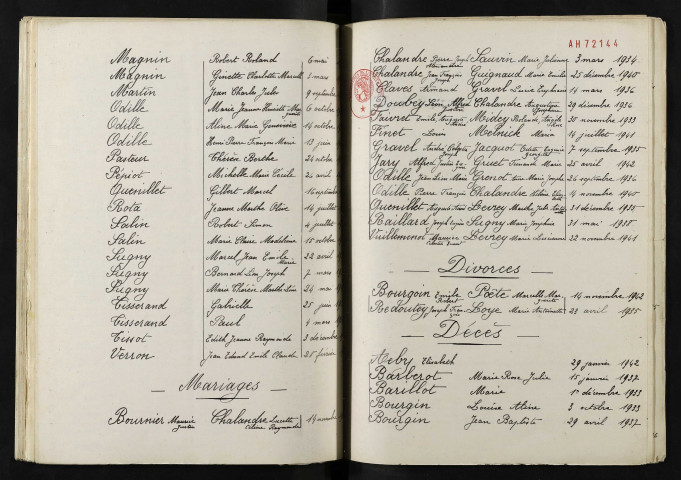 Magnin Robert Roland 6 mai
Magnin Ginette Charlotte Marcelle mars
Martin Jean Charles Jules 9 septembre
Odille Marie Jeanne Henriette 6 octobre
Odille Aline Marie Geneviève 16 octobre
Odille Henri Pierre François Marie 13 juin
Pasteur Thérèse Berthe 24 octobre
Pépiot Michelle Marie Cécile avril
Quenillet Gilbert Marcel septembre
Rota Jeanne Marthe Olive 14 juillet
Salin Robert Simon 4 juillet
Salin Marie Claire Madeleine 15 octobre
Sugny Marcel Jean Emile Marie 22 avril
Sugny Bernard Léon Joseph 7 mars
Sugny Marie Thérèse 24 mai
Tisserand Gabrielle 25 juin
Tisserand Paul 4 mars
Tissot Edith Jeanne Raymonde 3 décembre
Verron Jean Edmond Emile Claude 25 février
— Mariages —
Bournier Maurice Gustave Chalandre Lucette Raymonde 19 novembre
AH72144
Chalandre Pierre Joseph Alexandre Sauvin Marie Julienne 3 mars 1934
Chalandre Jean François Joseph Guignaud Marie Emilie 25 décembre 1940
Claves Armand Gravel Marie Euphrasie 14 mars 1936
Doubey Alfred Chalandre Augustine 29 décembre 1936
Fauret Emile Auguste Midey Rolande 30 novembre 1933
Finet Louis Melnick Maria 14 juillet 1941
Gravel André Joseph Jacquot Eugénie 7 septembre 1935
Jary Alfred Gruet Fernande Marie 25 avril 1942
Odille Marie Grenot Marie Joseph 26 septembre 1936
Odille Pierre François Chalandre 14 novembre 1940
Quenillet Devrey 31 décembre 1935
Baillard Joseph Sugny Marie Joséphine 31 mai 1935
Vuillemenot Maurice Devrey Marie Lucienne 22 novembre 1941
— Divorces —
Bourgoin Emile Robert Poète Marcelle Marguerite 14 novembre 1942
Redoutey Joseph François Loye Marie Antoinette 22 avril 1935
— Décès —
Arby Elisabeth 29 janvier 1942
Barberot Marie Rose Julie 15 janvier 1937
Barillot Marie 1er décembre 1933
Bourgin Louise Aline 3 octobre 1933
Bourgin Jean Baptiste 29 avril 1937